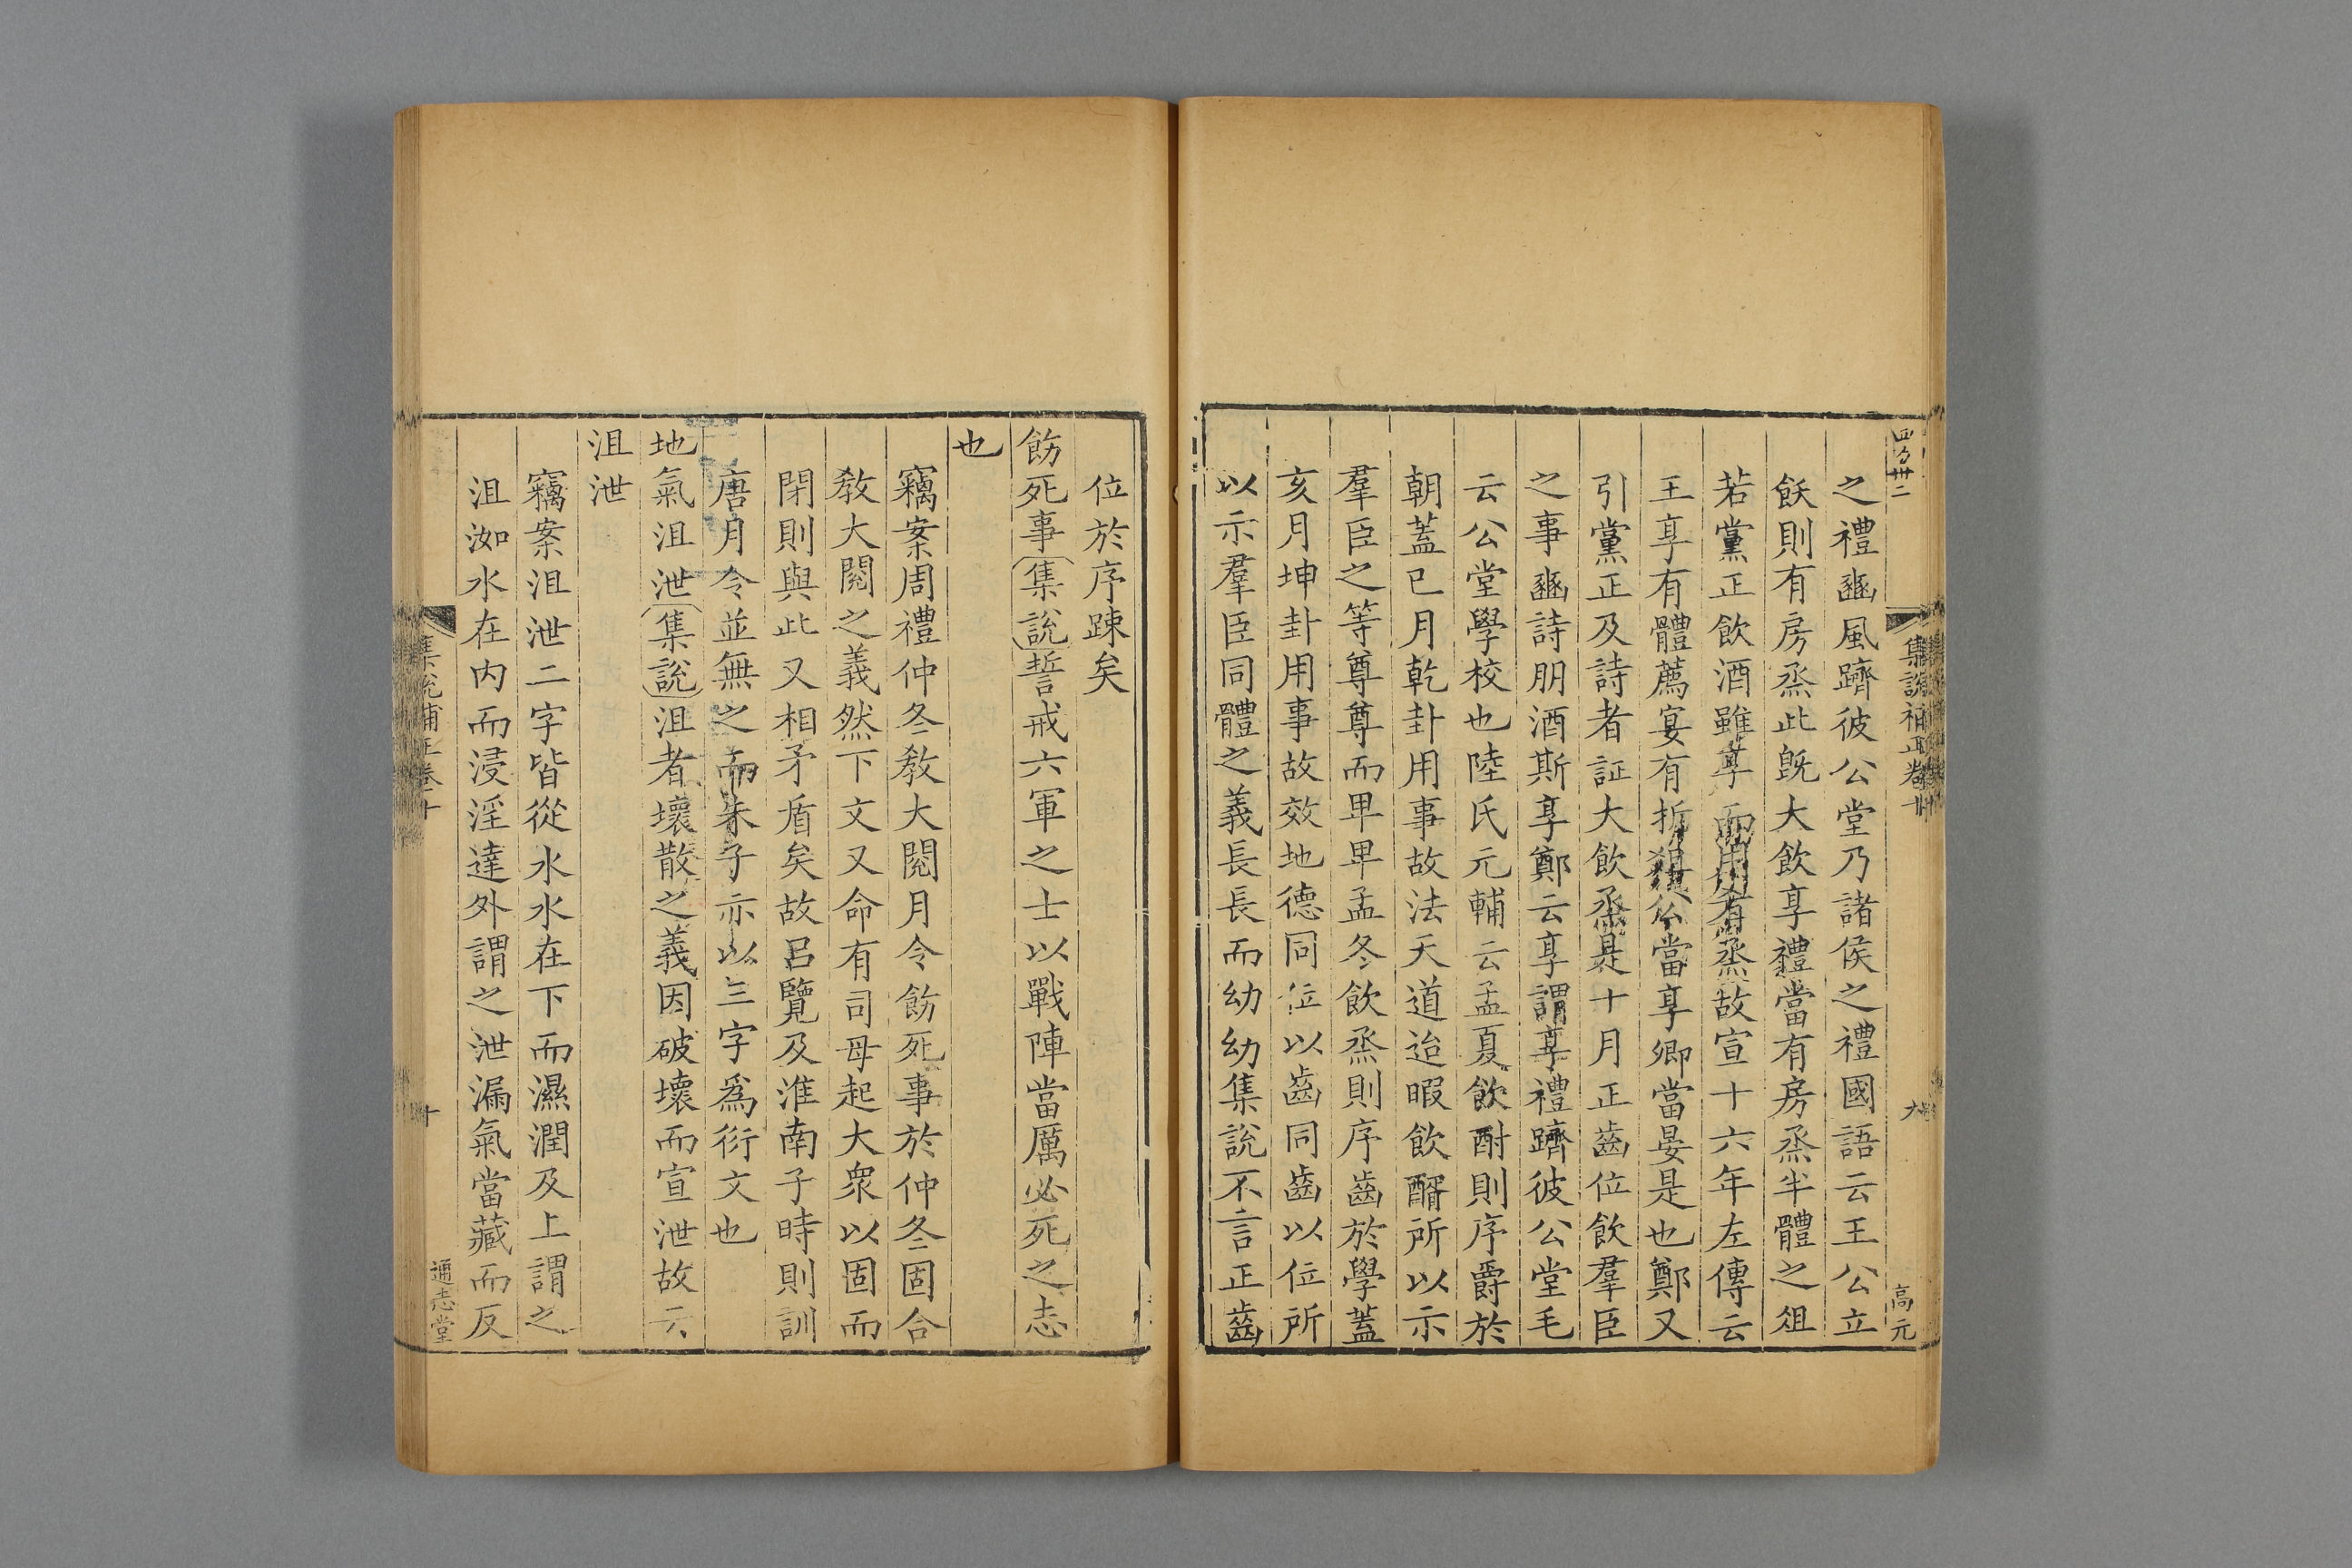 集說補正卷十
高元
之禮豳風躋彼公堂乃諸侯之禮國語云王公立
飫則有房烝此旣大飲享禮當有房烝半體之俎
若黨正飲酒雖享而用殽烝故宣十六年左傳云
王享有體薦宴有折俎公當享卿當晏是也鄭又
引黨正及詩者証大飲烝是十月正齒位飲羣臣
之事豳詩朋酒斯享鄭云享謂享禮躋彼公堂毛
云公堂學校也陸氏元輔云孟夏飲酎則序爵於
朝蓋巳月乾卦用事故法天道迨暇飲醑所以示
羣臣之等尊尊而卑卑孟冬飲烝則序齒於學蓋
亥月坤卦用事故效地德同位以齒同齒以位所
以示羣臣同體之義長長而幼幼集說不言正齒
位於序踈矣
飭死事集說誓戒六軍之士以戰陣當厲必死之志
也
竊案周禮仲冬教大閱月令飭死事於仲冬固合
教大閱之義然下文又命有司毋起大衆以固而
閉則與此又相矛盾矣故呂覽及淮南子時則訓
唐月令並無之而朱子亦以三字爲衍文也
地氣沮泄集說沮者壞散之義因破壞而宣泄故云
沮泄
竊案沮泄二字皆從水水在下而濕潤及上謂之
沮洳水在内而浸淫達外謂之泄漏氣當藏而反
集說補正卷十
十
通志堂